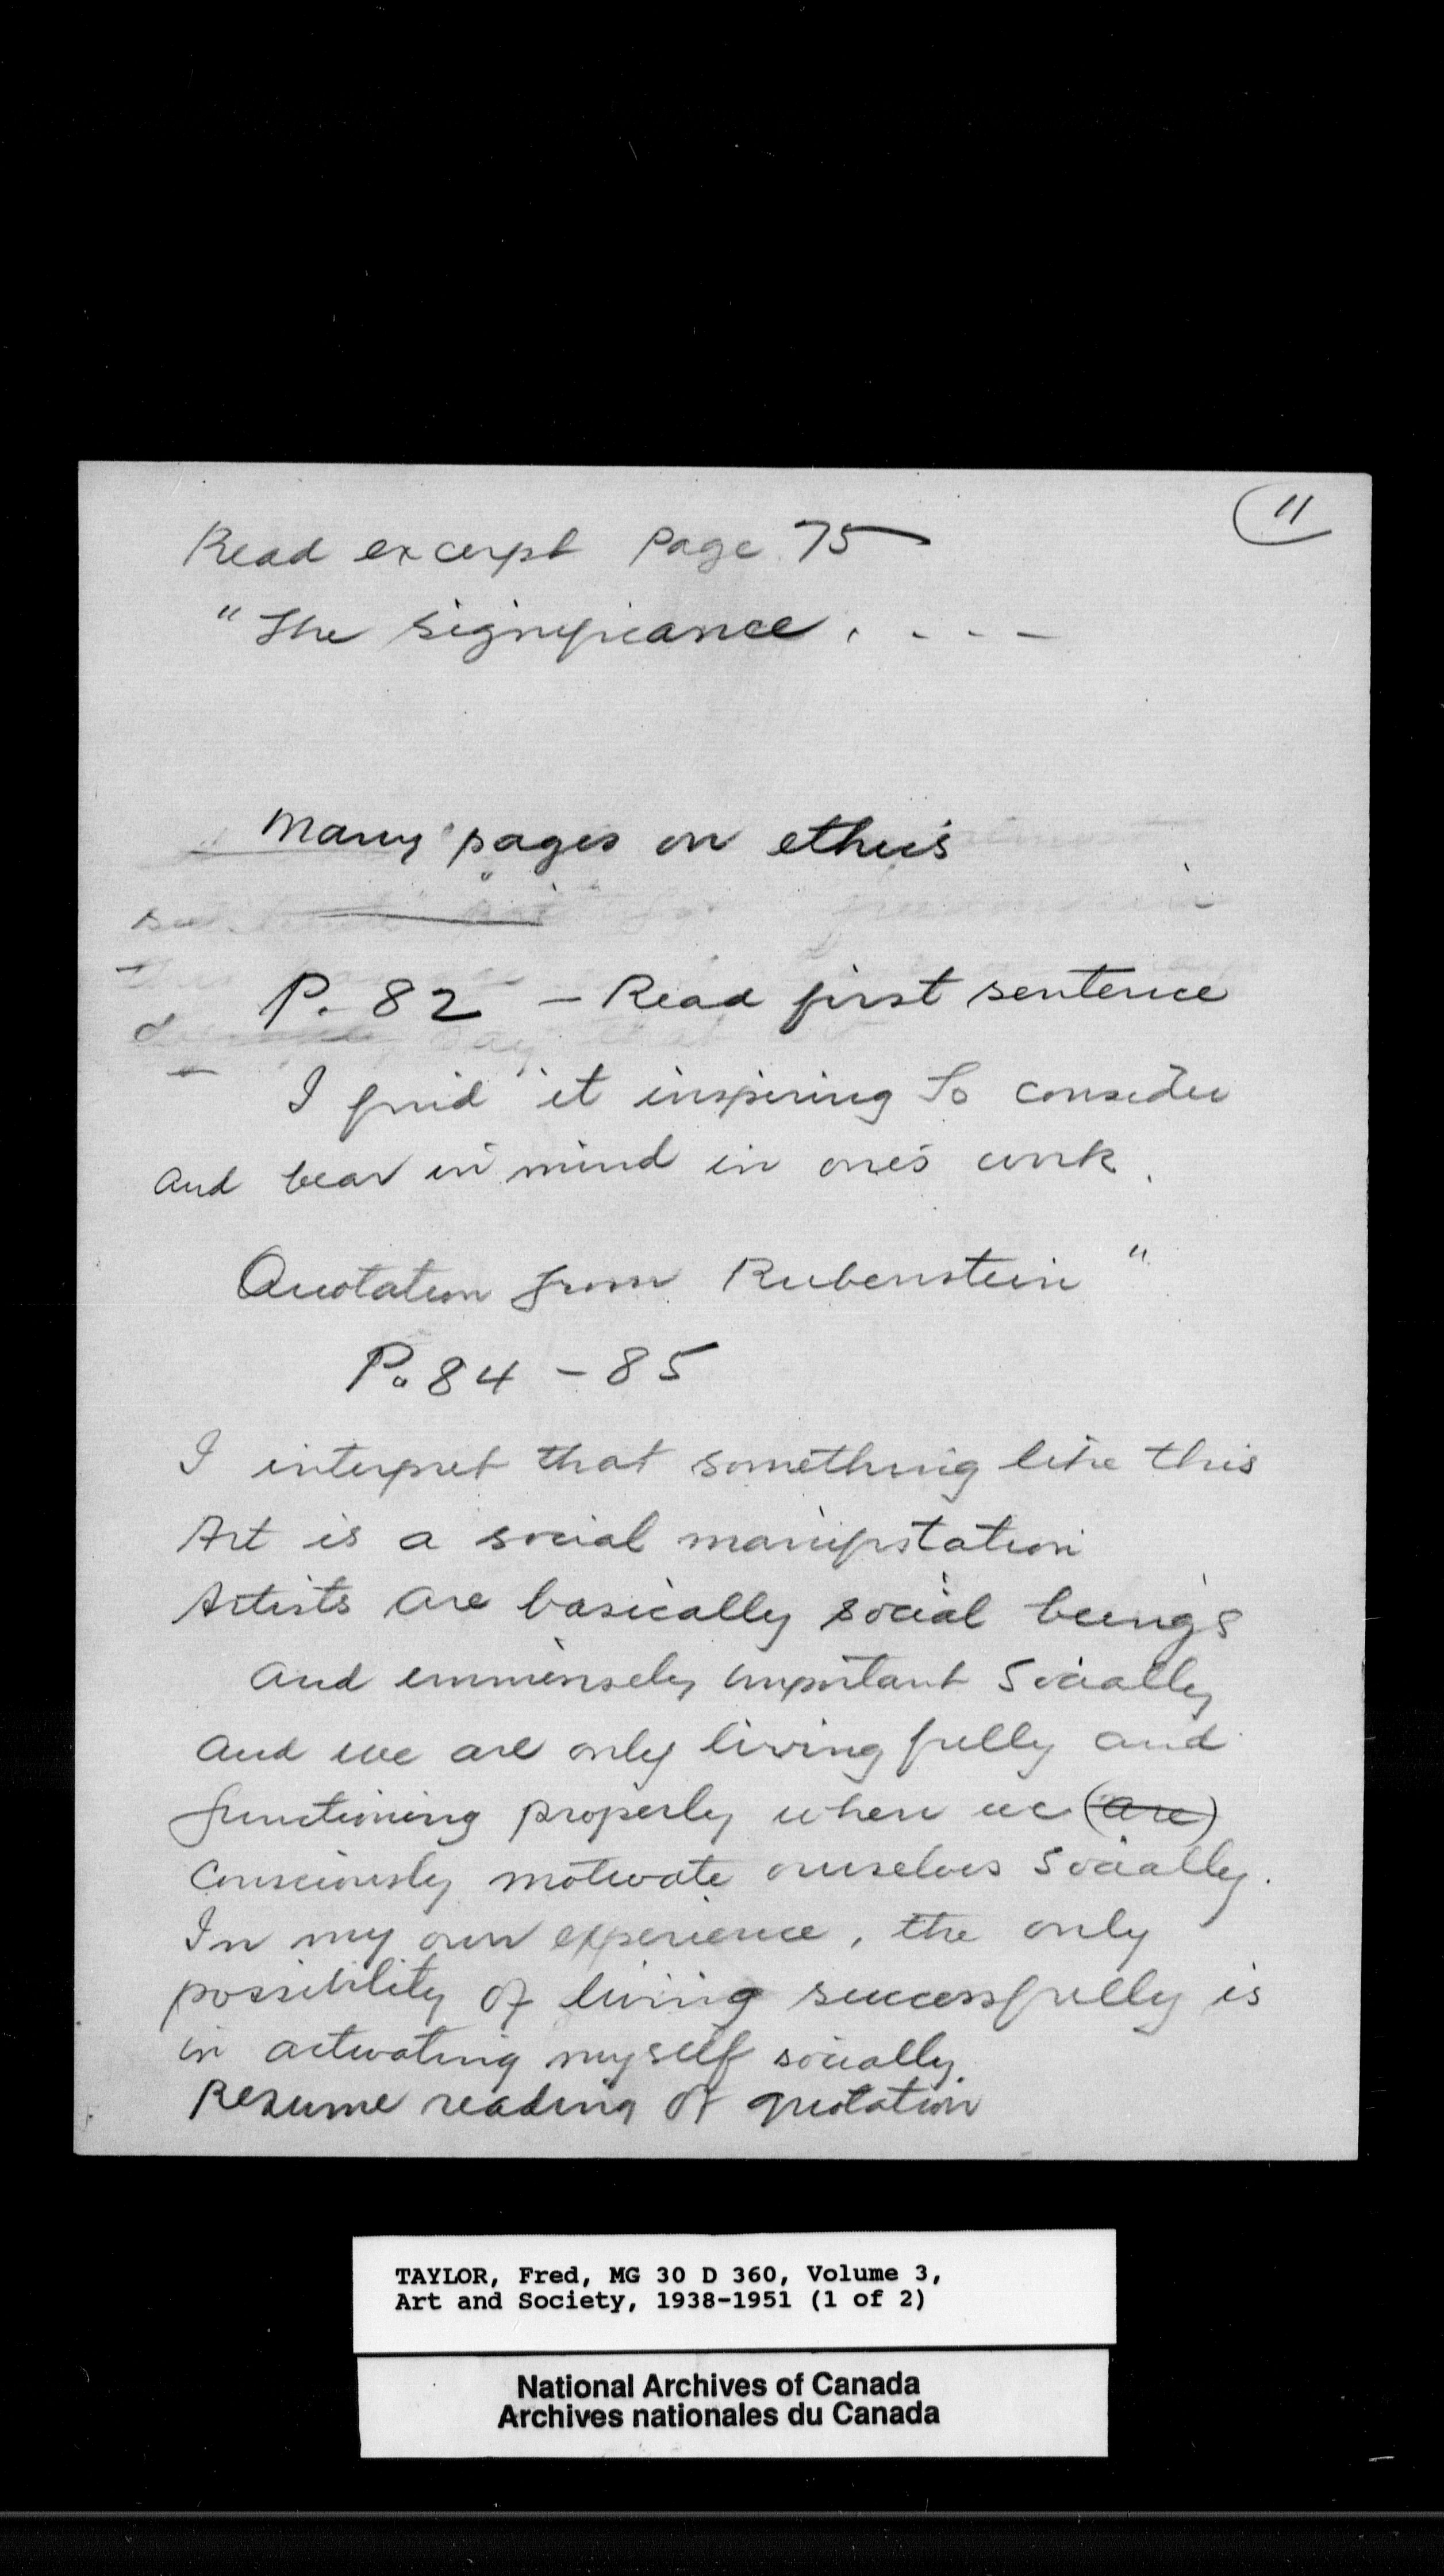 11
Read excerpt Page 75
"The significance . - - -
Many pages on ethics
P. 82 - Read first sentence
I find it inspiring to consider
and bear in mind in one's work.
Quotation from Rubenstein "
P. 84 - 85
I interpret that something like this
Art is a social manifestation
Artists are basically social beings
and immensely important socially
and we are only living fully and
functioning properly when we (are)
consciously motivate ourselves socially.
In my own experience, the only
possibility of living successfully is
in activating myself socially.
Resume reading of quotation
TAYLOR, Fred, MG 30 D 360, Volume 3,
Art and Society, 1938-1951 (1 of 2)
National Archives of Canada
Archives nationales du Canada